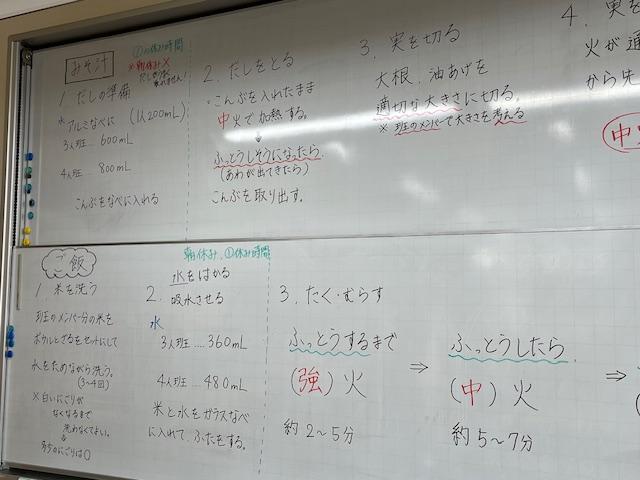 みそ汁
※朝休み×
1. だしの準備
水 アルミなべに (1人200mL)
3人班…600mL
4人班…800mL
こんぶをなべに入れる
2. だしをとる
・こんぶを入れたまま
中火で加熱する。
↓
ふっとうしそうになったら
(あわが出てきたら)
こんぶを取り出す。
3. 実を切る
大根、油あげを
適切な大きさに切る。
※ 班のメンバーで大きさを考える
4. 実を
火が通
から先
中
ご飯
朝休み、①休み時間
1. 米を洗う
班のメンバー分の米を
ボウルとざるをセットにして
水をためながら洗う。
(3~4回)
※白いにごりが
なくなるまで
洗わなくてよい。
2. 水をはかる
吸水させる
水
3人班….360mL
4人班…480mL
米と水をガラスなべ
に入れて、ふたをする。
3. たく・むらす
ふっとうするまで
(強)火
約2~5分
⇒
ふっとうしたら
(中)火
約5~7分
⇒